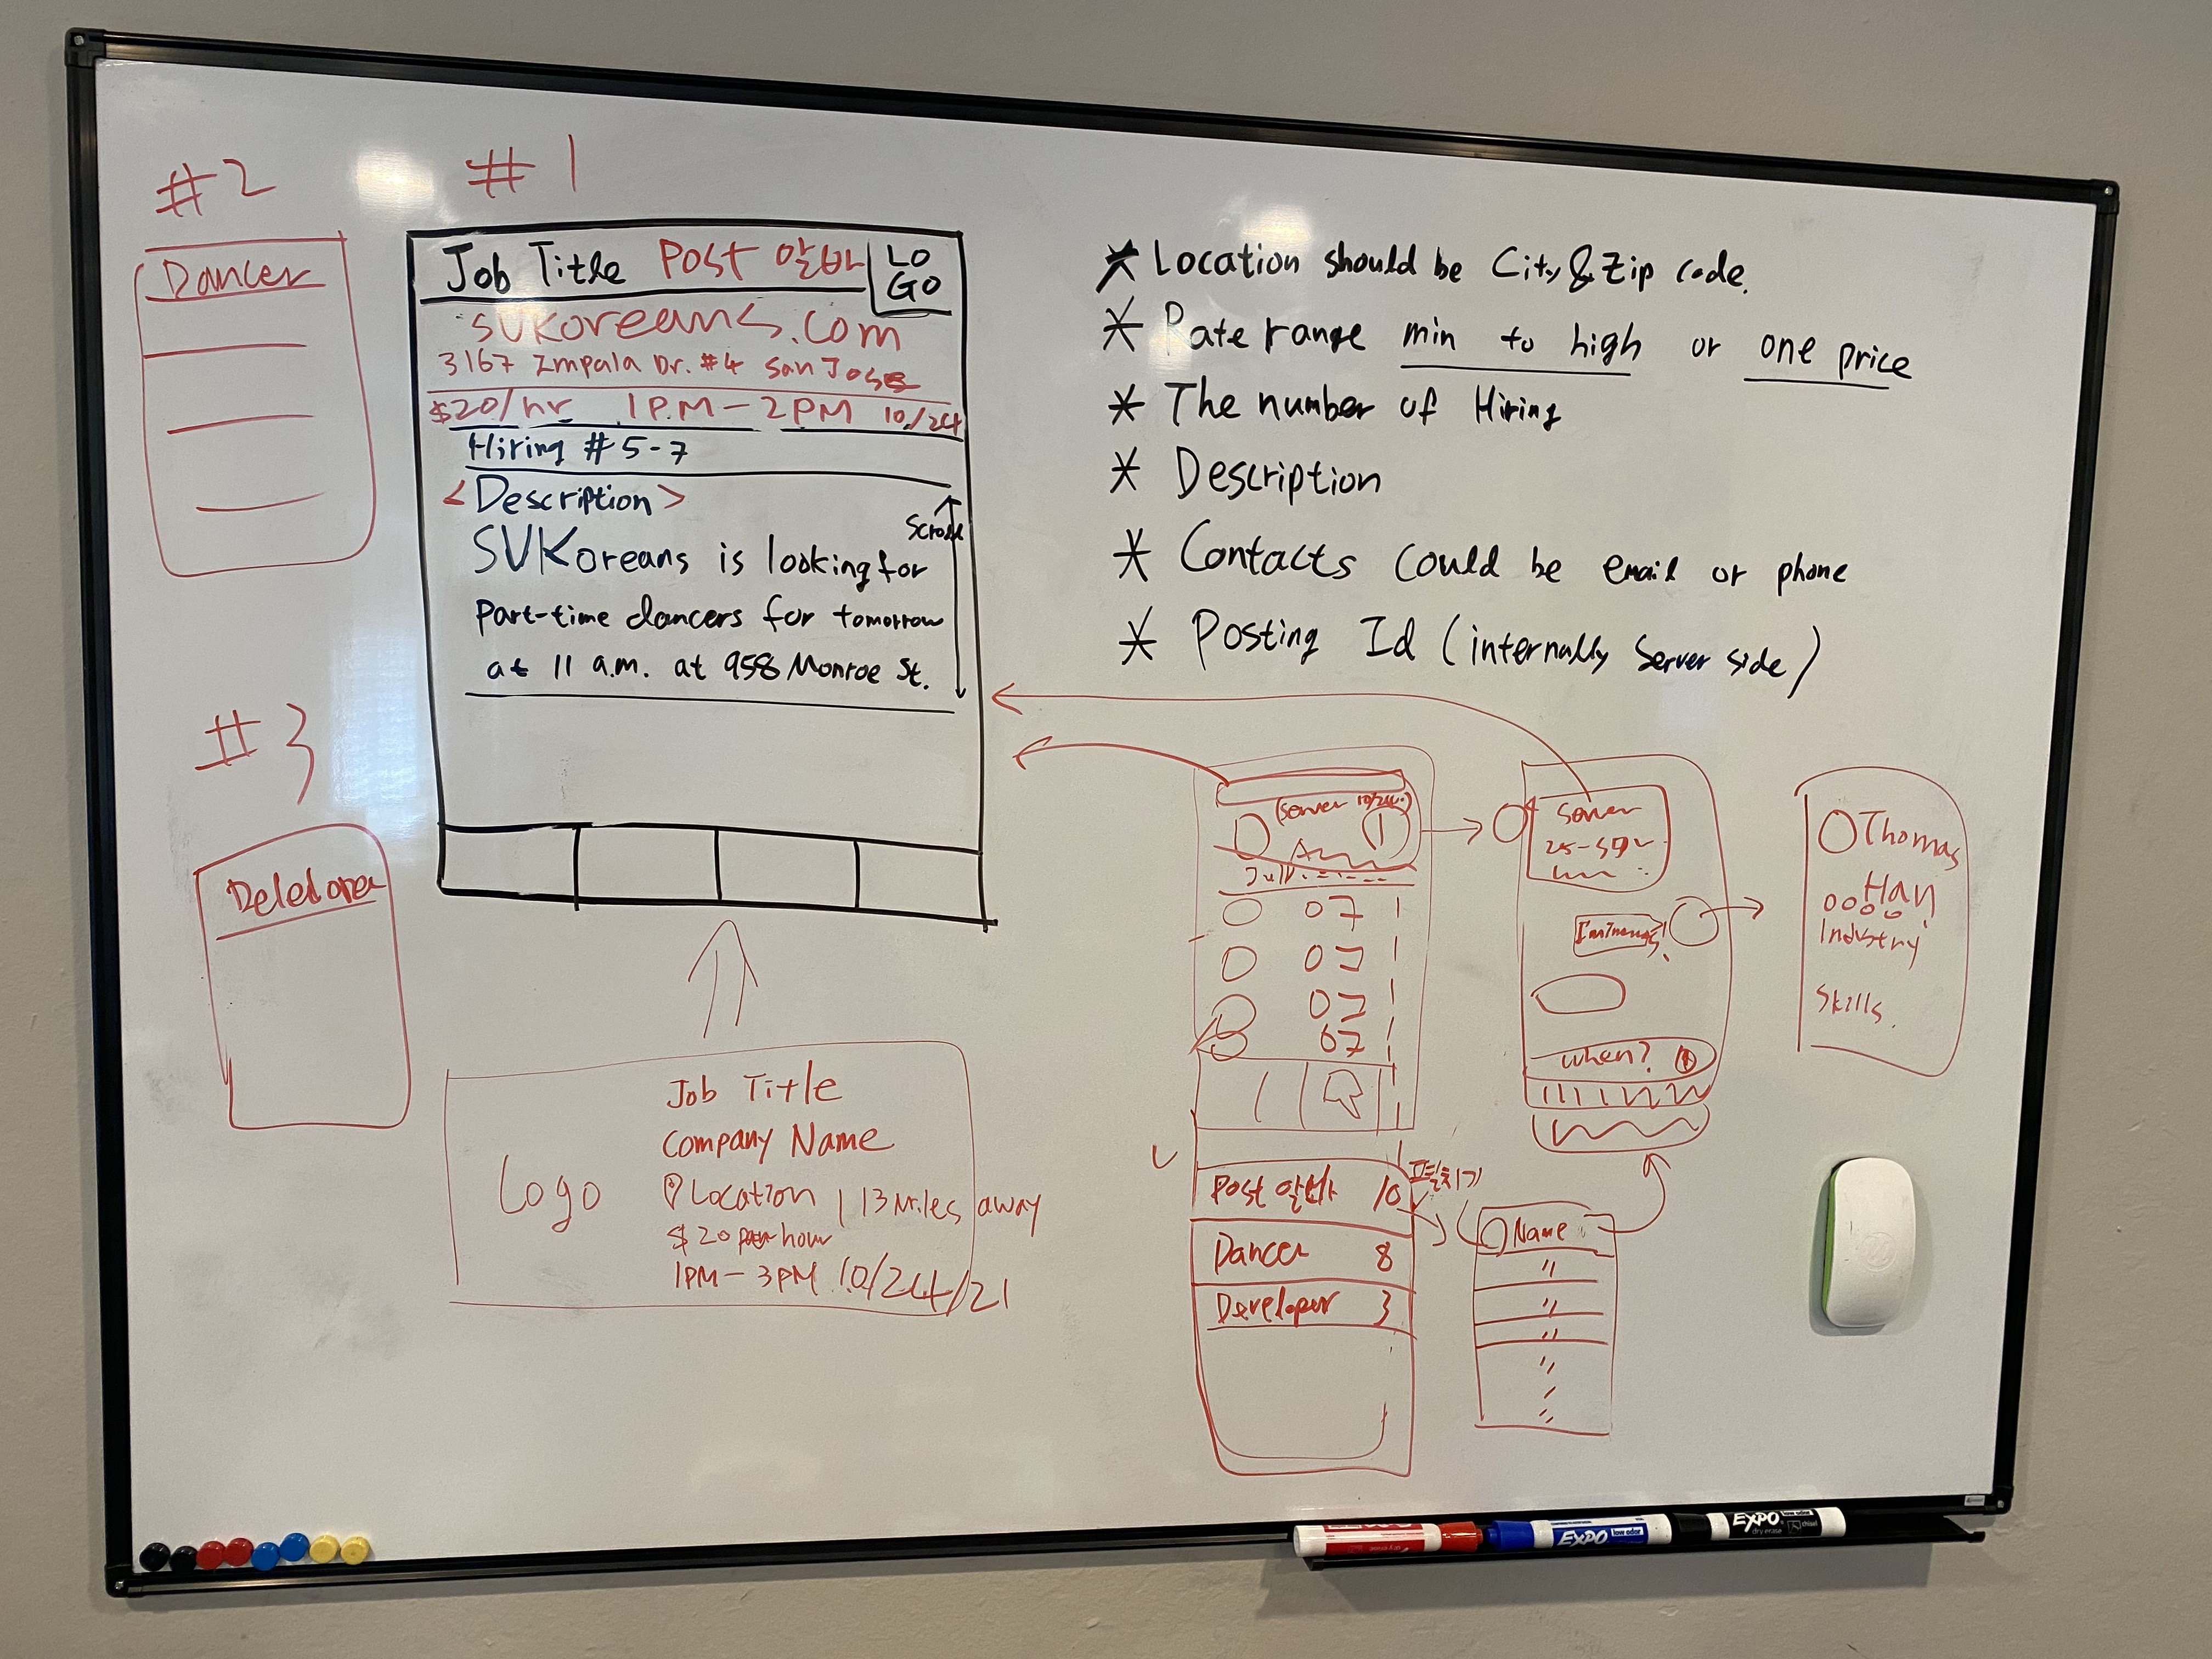 #2
#1
Dancer
Job Title Post 알바
LO
GO
SVKoreans.com
3167 Impala Dr. #4 San Jose
$20/hr 1P.M-2PM 10/24
Hiring #5-7
<Description>
Scroll
SVKoreans is looking for
part-time dancers for tomorrow
at 11 a.m. at 958 Monroe St.
#3
* Location should be City & Zip code.
* Rate range min to high or one price
* The number of Hiring
* Description
* Contacts could be email or phone
* Posting Id (internally server side)
Logo
Job Title
Company Name
Location | 13 Miles away
$20 per hour
1PM-3PM 10/24/21
(Server 10/24.)
07
07
07
07
Post 알바 10
Dancer 8
Developer 3
Server
when?
Name
"
"
"
"
"
"
Thomas
Han
Industry
Skills.
EXPO
low odor
EXPO
dry erase
chisel